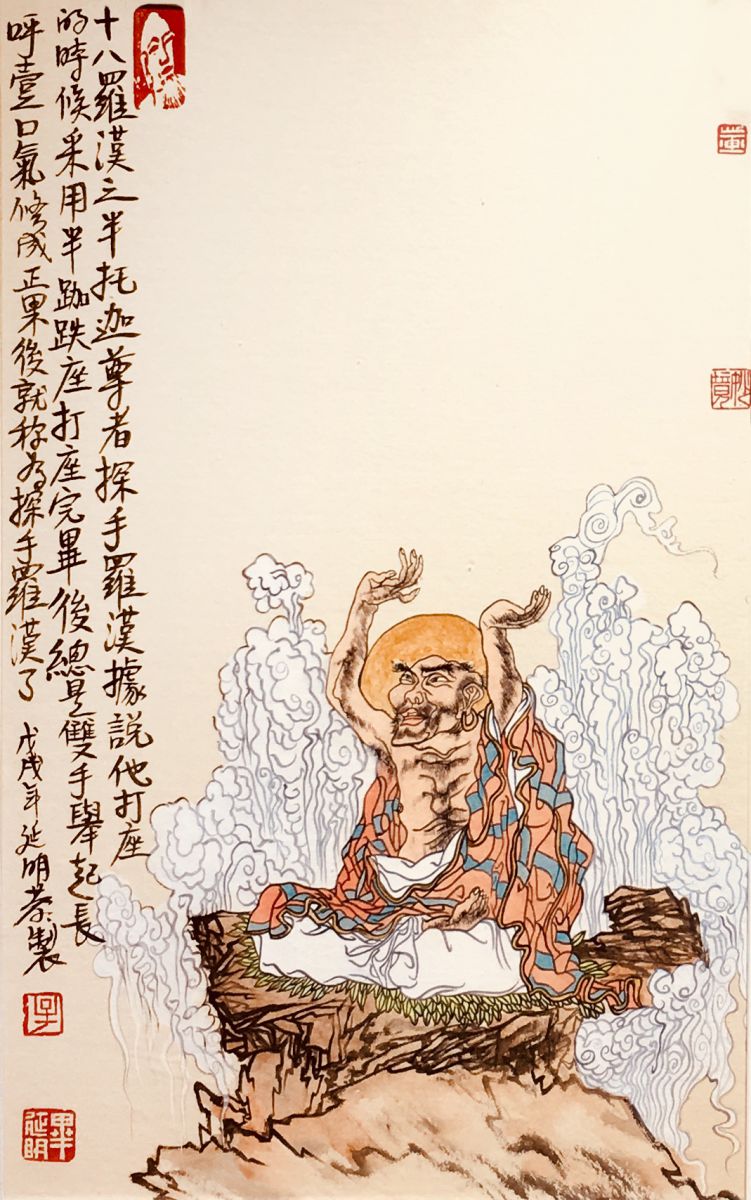 十八羅漢之半托迦尊者探手羅漢據説他打座
的時候采用半跏趺座打座完畢後總是雙手舉起長
呼壹口氣修成正果後就称為探手羅漢了
戊戌年延明恭製
畢延明